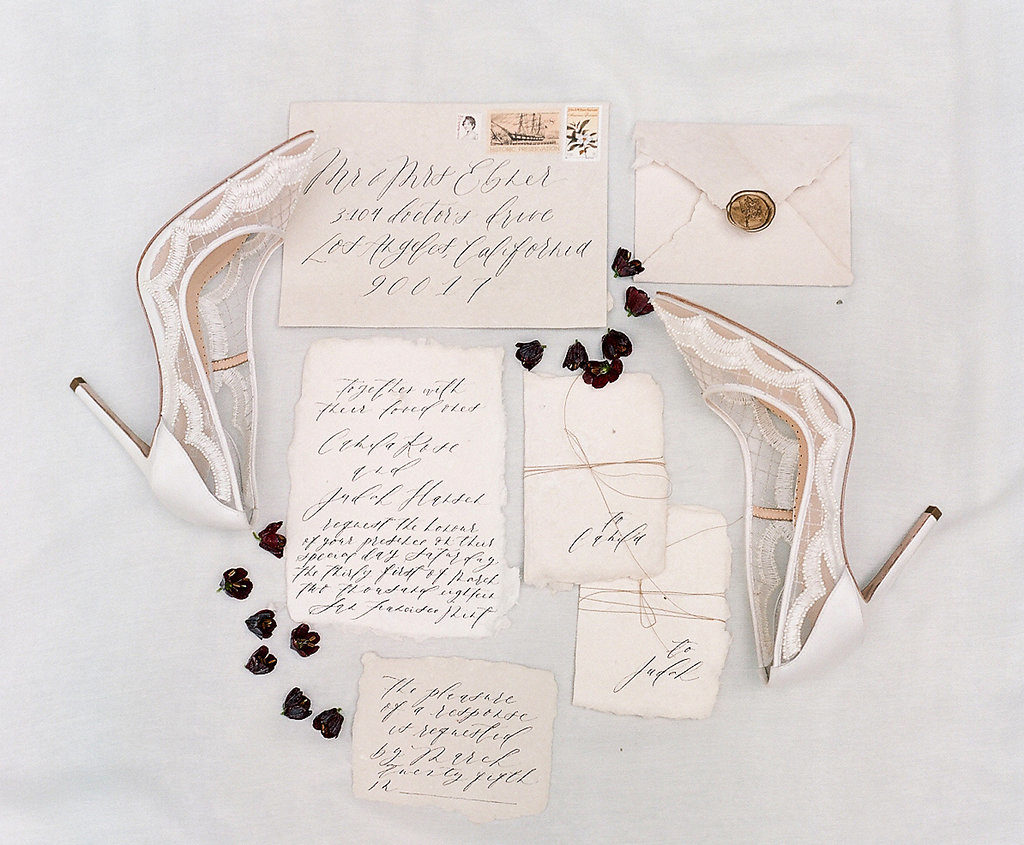 Mr & Mrs Ebner
3104 doctor's drive
Los Angeles, California
90017
HISTORIC PRESERVATION
together with
their loved ones
Camila Rose
and
Judah Hansen
request the honour
of your presence on their
special day Saturday,
the thirty first of March
two thousand eighteen
San Francisco Mint
to
Camila
to
Judah
the pleasure
of a response
is requested
by March
twenty fifth